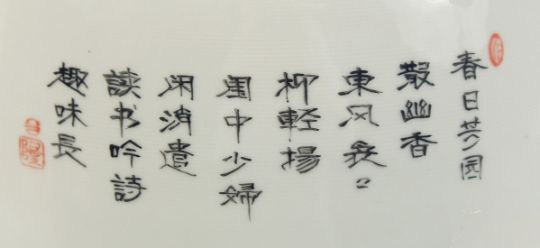 春日芳园
散幽香
東风袅〻
柳軽揚
閨中少婦
闲消遣
读书吟詩
趣味長